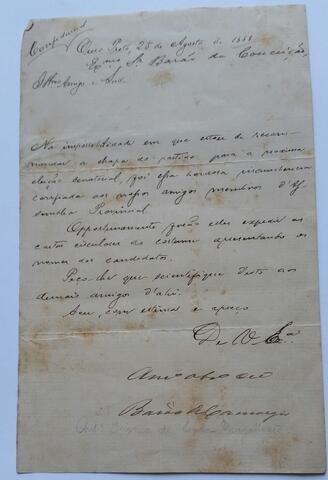 Confidencial
Ouro Preto, 28 de Agosto de 1888
Exmo Sr Barão da Conceição,
Illmo Amigo e Snr.
Na impossibilidade em que estou de recom-
mendar a chapa do partido para a proxima
eleição senatorial, foi essa honrosa incumbencia
confiada aos nossos amigos membros d'As-
semblea Provincial.
Opportunamente farão estes expedir as
cartas circulares do costume apresentando os
nomes dos candidatos.
Peço-lhe que scientifique d'isto aos
demais amigos d'ahi.
Sou, com estima e apreço
De V. Exa
Amo obrdo
Barão de Camargos